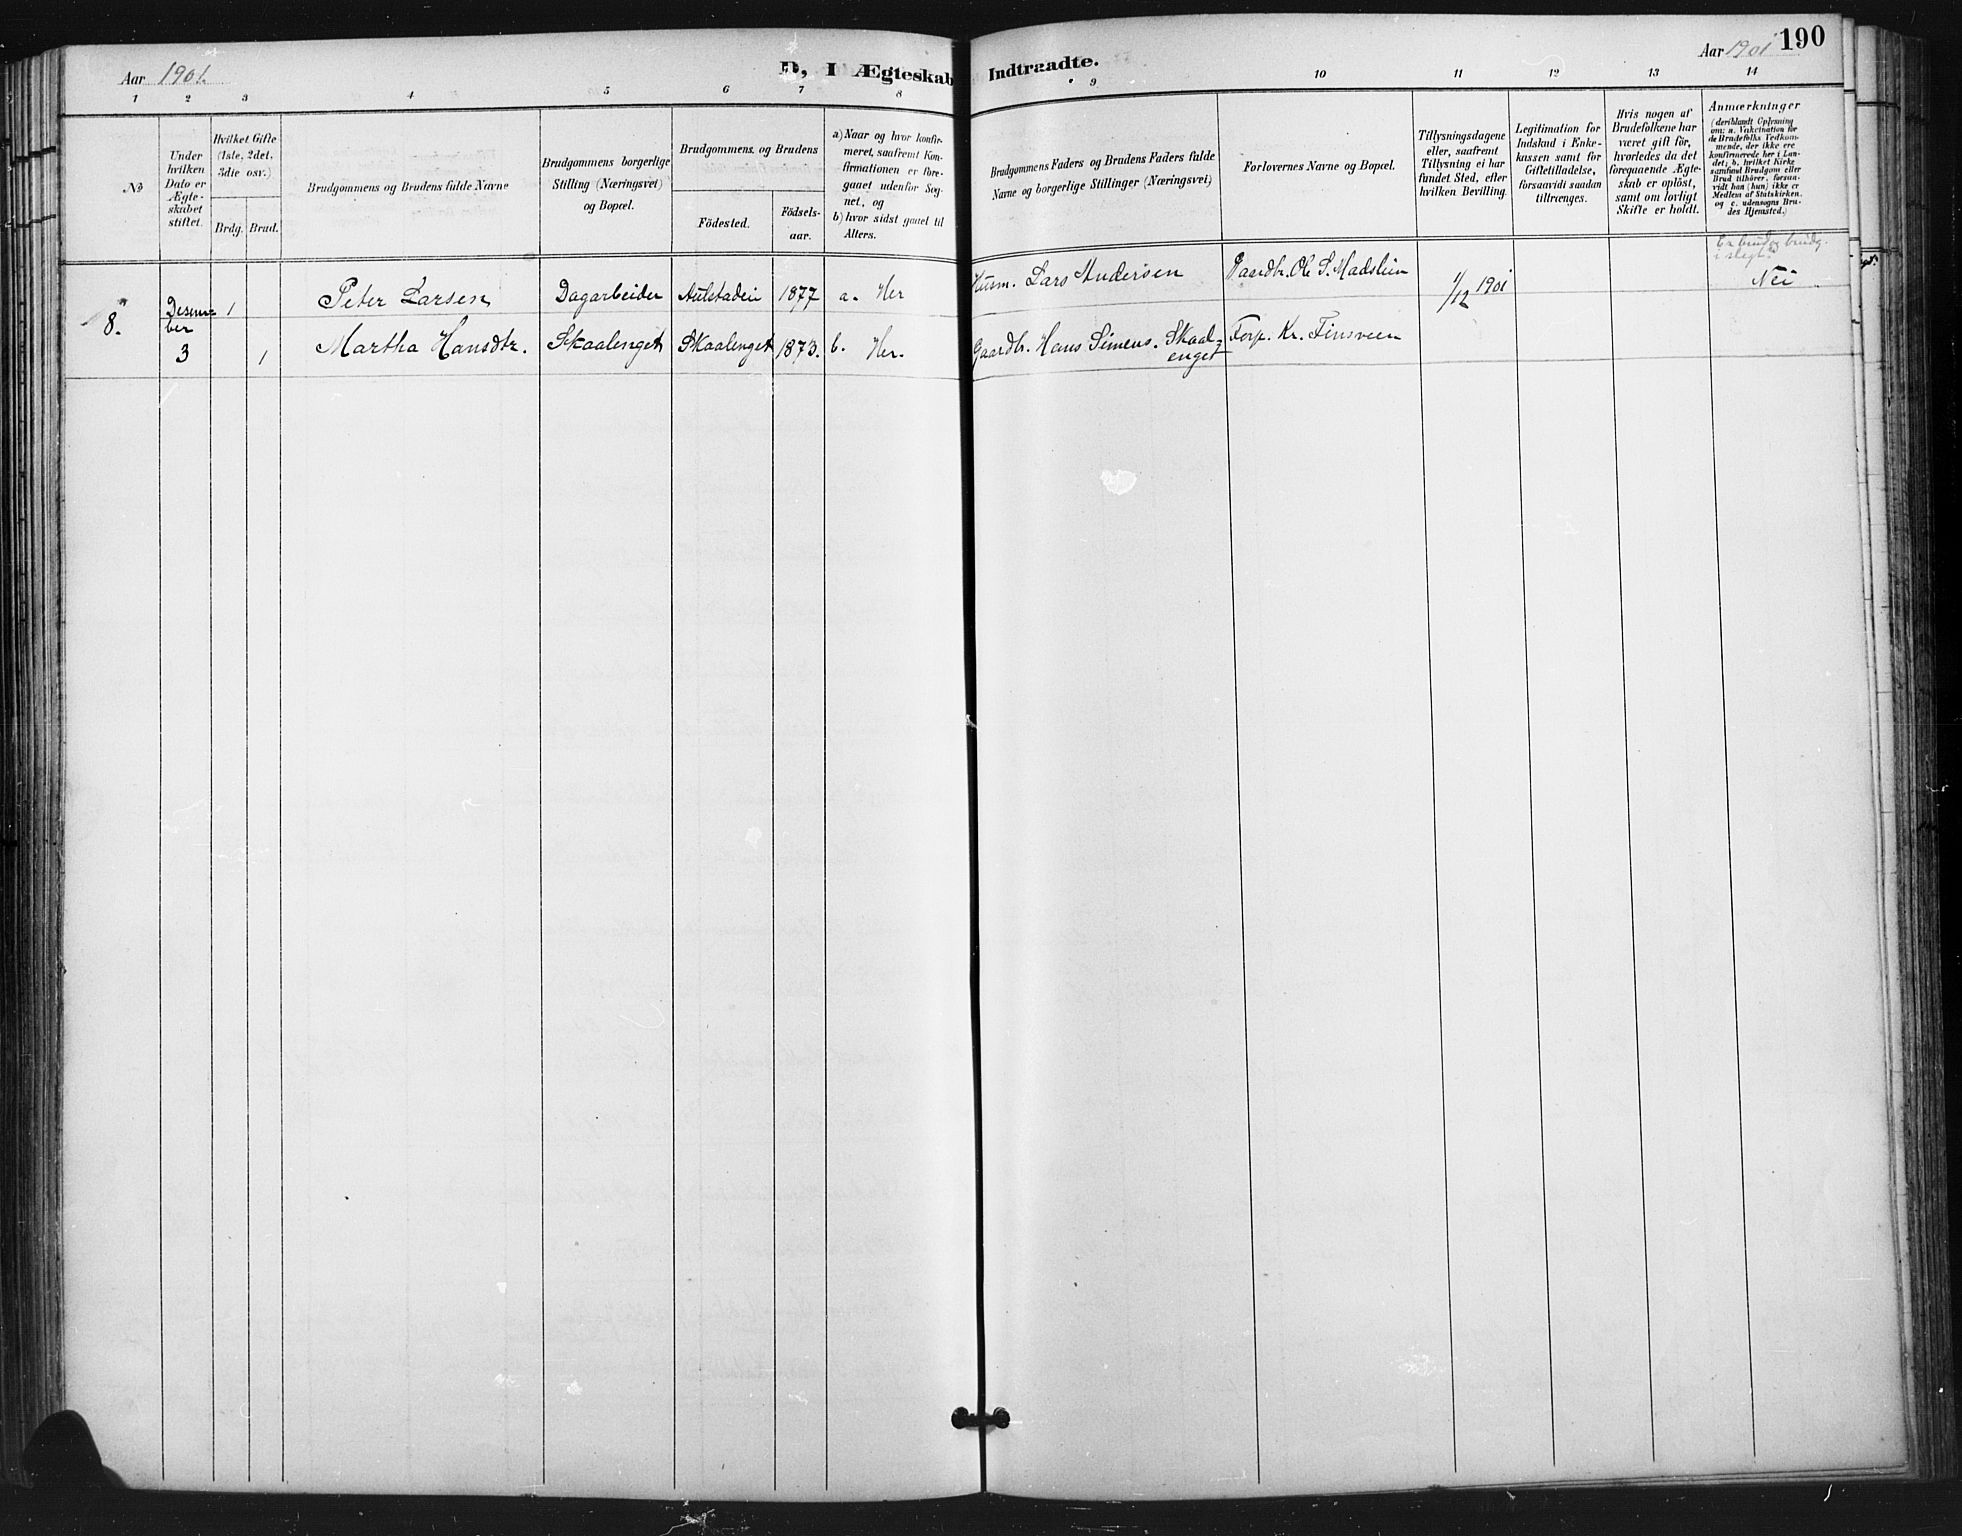 Aar 1901.
D, I Ægteskab Indtraadte.
Aar 1901
190
1 2 3 4 5 6 7 8 9 10 11 12 13 14
No
Under
hvilken
Dato er
Ægte-
skabet
stiftet.
Hvilket Gifte
(1ste, 2det,
3die osv.)
Brdg. Brud.
Brudgommens og Brudens fulde Navne
Brudgommens borgerlige
Stilling (Næringsvei)
og Bopæl.
Brudgommens og Brudens
Födested.
Födsels-
aar.
a) Naar og hvor konfir-
meret, saafremt Kon-
firmationen er fore-
gaaet udenfor Sog-
net, og
b) hvor sidst gaaet til
Alters.
Brudgommens Faders og Brudens Faders fulde
Navne og borgerlige Stillinger (Næringsvei)
Forlovernes Navne og Bopæl.
Tillysningsdagene
eller, saafremt
Tillysning ei har
fundet Sted, efter
hvilken Bevilling.
Legitimation for
Indskud i Enke-
kassen samt for
Giftetilladelse,
forsaavidt saadan
tiltrænges.
Hvis nogen af
Brudefolkene har
været gift för,
hvorledes da det
foregaaende Ægte-
skab er oplöst,
samt om lovligt
Skifte er holdt.
Anmærkninger
(deriblandt Oplysning
om: a. Vakcination for
de Brudefolks Vedkom-
mende, der ikke ere
konfirmerede her i Lan-
det; b. hvilket Kirke
samfund Brudgom eller
Brud tilhörer, forsaa-
vidt han (hun) ikke er
Medlem af Statskirken,
og c. udensogns Bru-
des Hjemsted.)
Er brud og brudg.
i slegt?
8. Desem-
ber
3
1 Peter Larsen Dagarbeider Aulstadeie 1877 a. Her Husm. Lars Andersen Gaardbr. Ole S. Madslien 1/12 1901 Nei
1 Martha Hansdtr. Skaalenget Skaalenget 1873. b. Her. Gaardbr. Hans Simens. Skaal-
enget Forp. Kr. Finsveen